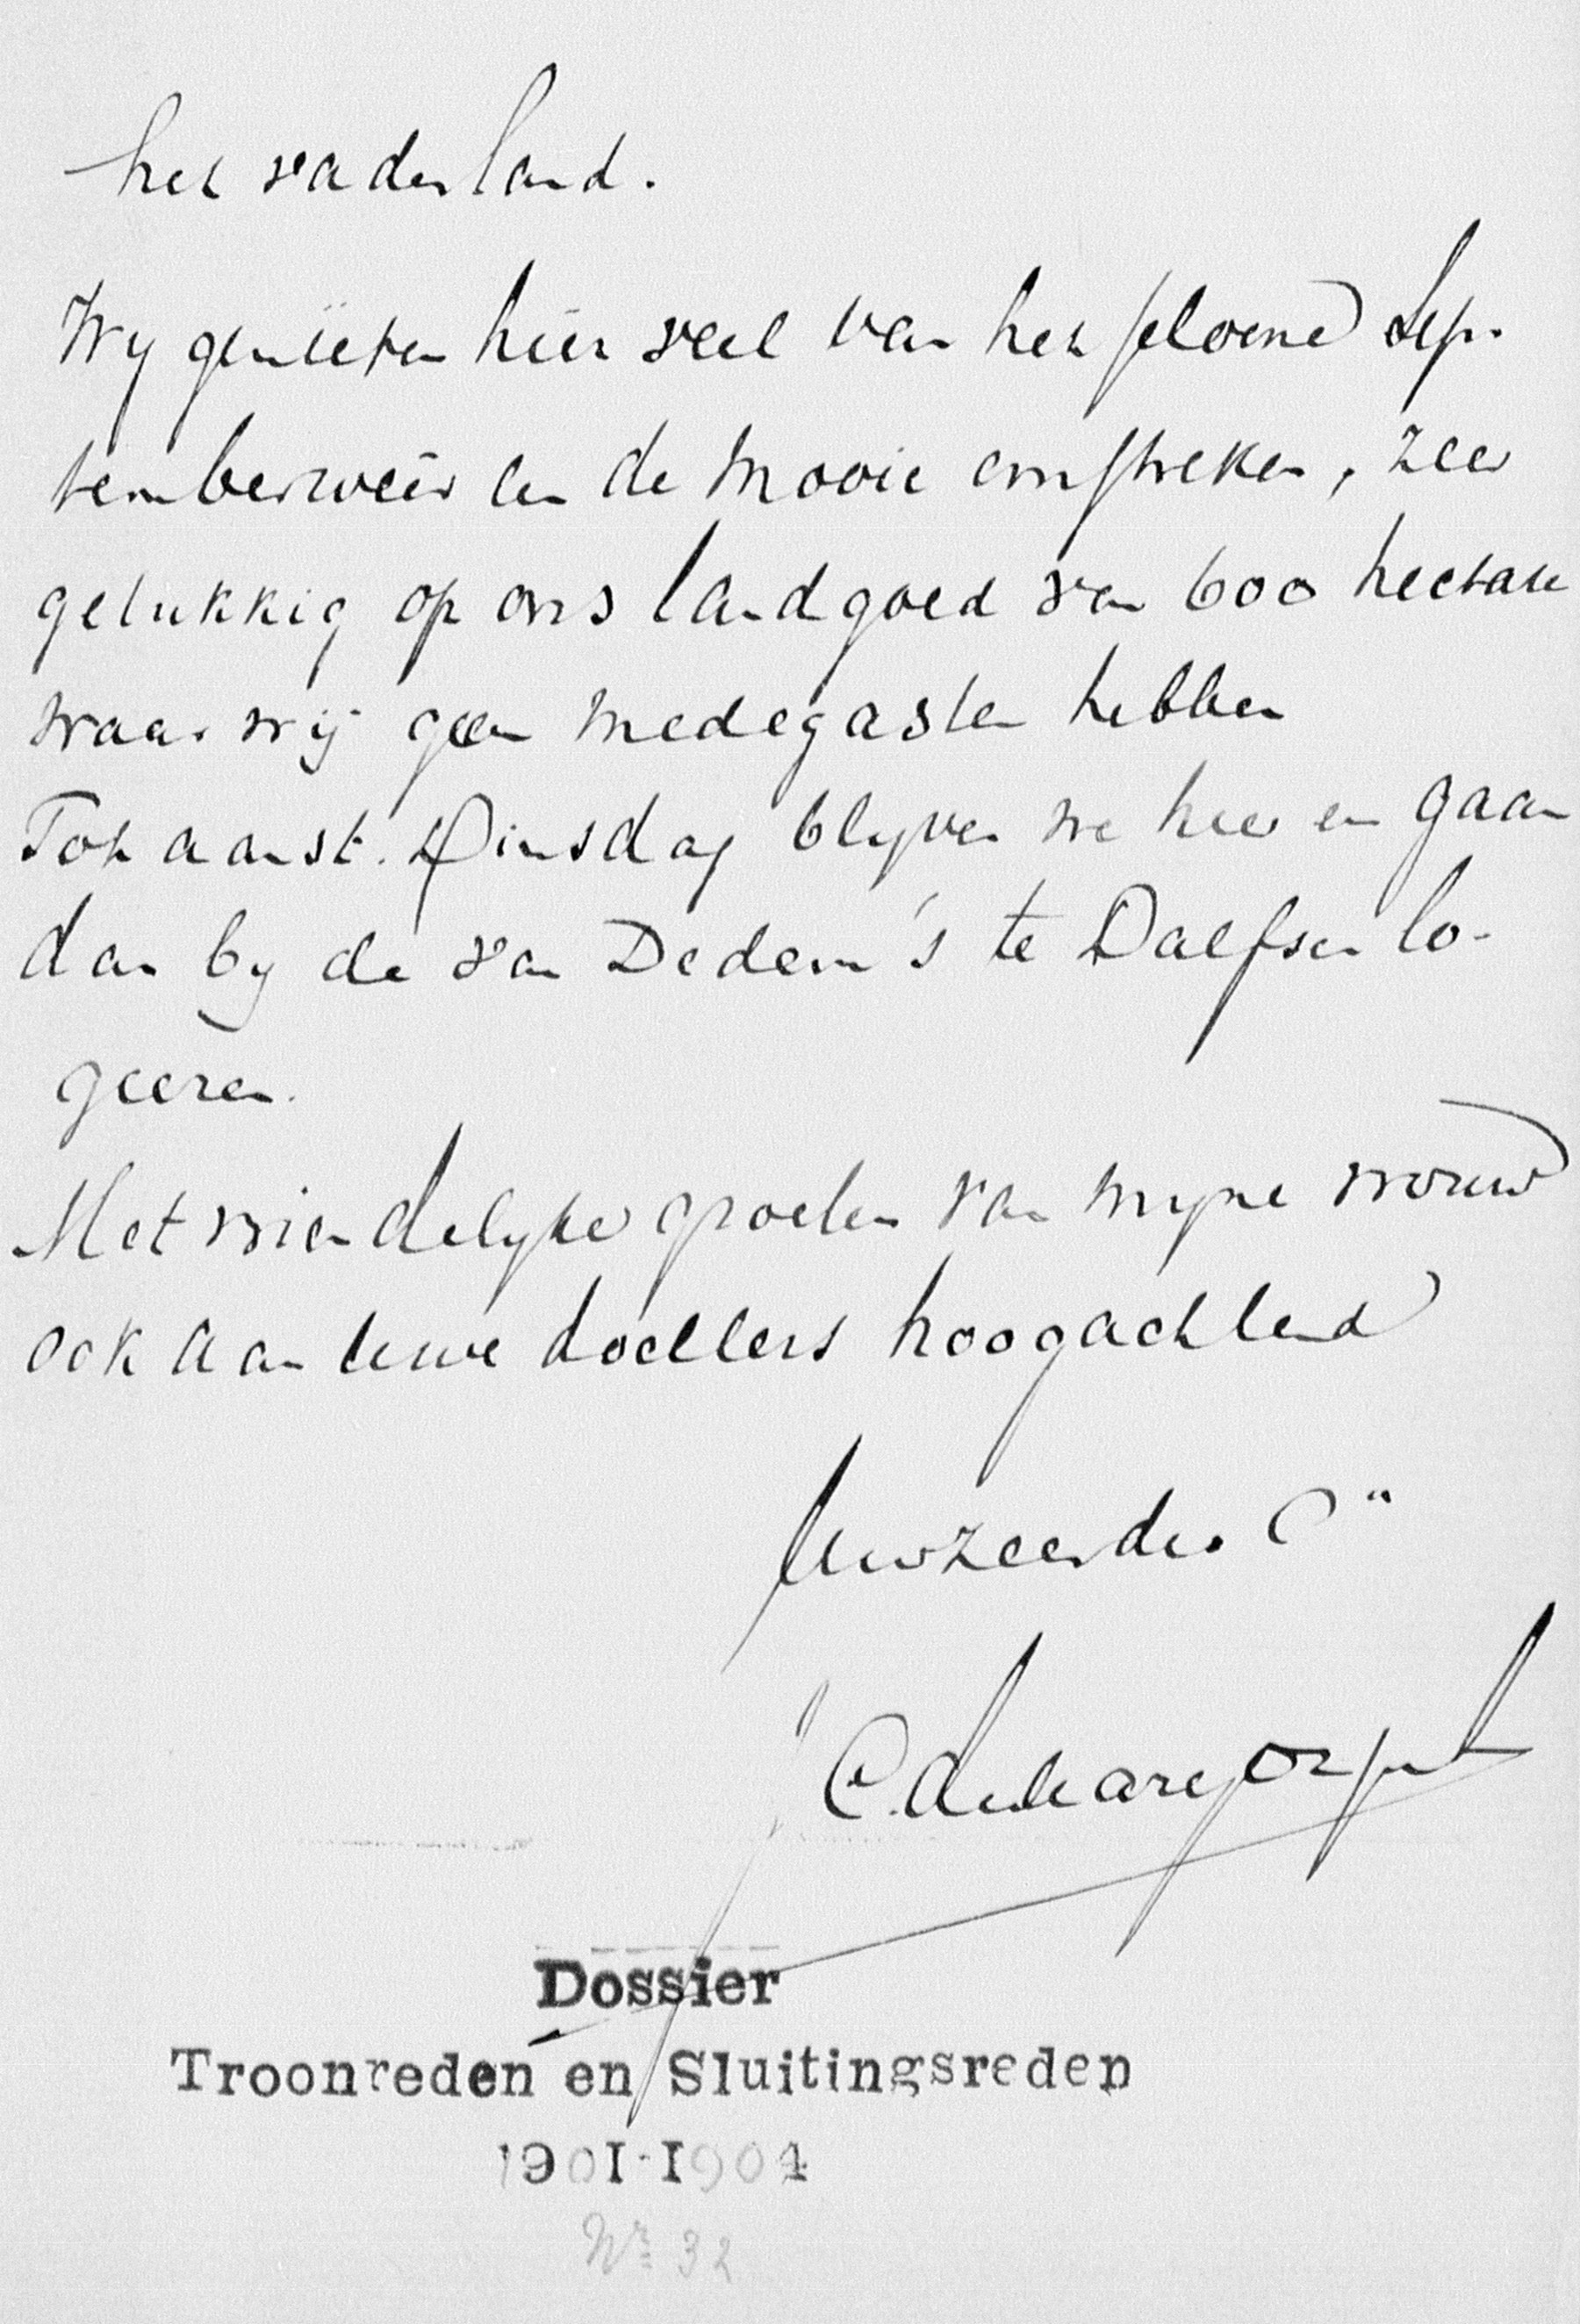 het vaderland.
Wy genieten hier veel van het schoone Sep-
temberweêr en de mooie omstreken, zeer
gelukkig op ons landgoed van 600 hectare
waar wij geen medegasten hebben
Tot aanst. Dinsdag blyven we hier en gaan
dan by de van Dedem's te Dalfsen lo-
geeren.
Met vriendelyke groeten van myne vrouw
ook aan Uwe dochters hoogachtend
Uwzeerdw.
C.
Dossier
Troonreden en Sluitingsreden
1901-1904
Nr 32